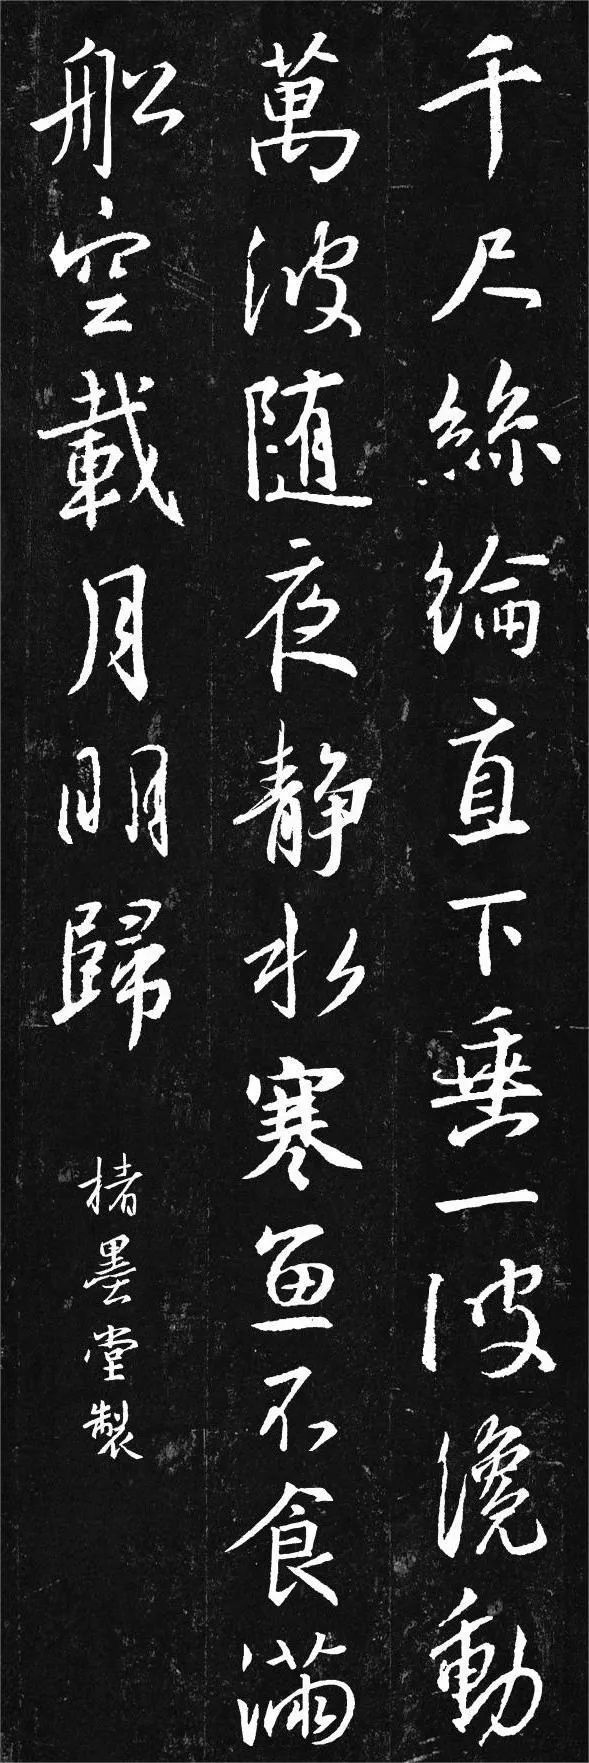 千尺絲綸直下垂一波纔動
萬波随夜静水寒魚不食滿
船空載月明歸
楮墨堂製